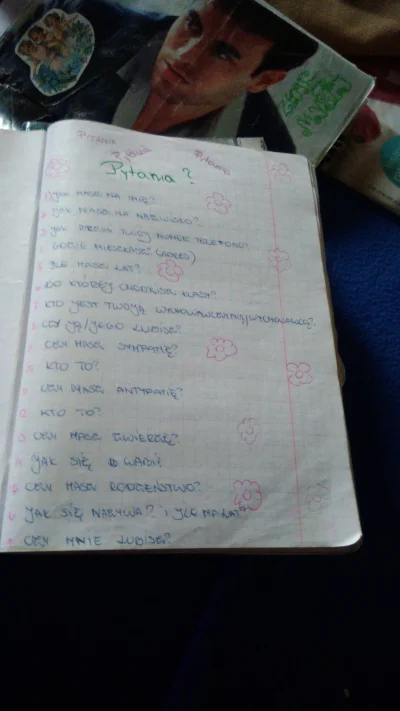 PYTANIA
Pytania
Pytania
Pytania?
1) JAK MASZ NA IMIĘ?
2 JAK MASZ NA NAZWISKO?
3 JAK BRZMI TWÓJ NUMER TELEFONU?
GDZIE MIESZKASZ? (ADRES)
5 ILE MASZ LAT?
DO KTÓREJ CHODZISZ KLASY?
KTO JEST TWOJĄ WYCHOWAWCZYNIĄ/WYCHOWAWCĄ?
CZY JĄ/JEGO LUBISZ?
CZY MASZ SYMPATIĘ?
KTO TO?
CZY MASZ ANTYPATIĘ?
KTO TO?
CZY MASZ ZWIERZĘ?
JAK SIĘ WABI?
CZY MASZ RODZEŃSTWO?
JAK SIĘ NAZYWA? I YLE MA LAT?
CZY MNIE LUBISZ?